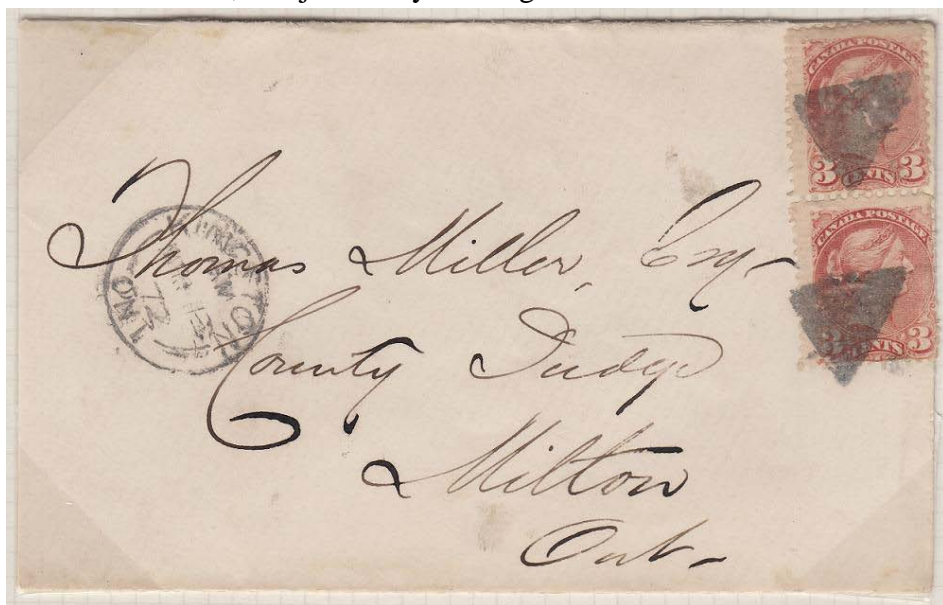 CANADA POSTAGE
3 CENTS 3
CANADA POSTAGE
3 CENTS 3
Thomas Miller, Esq
County Judge
Milton
Ont
ONT
72